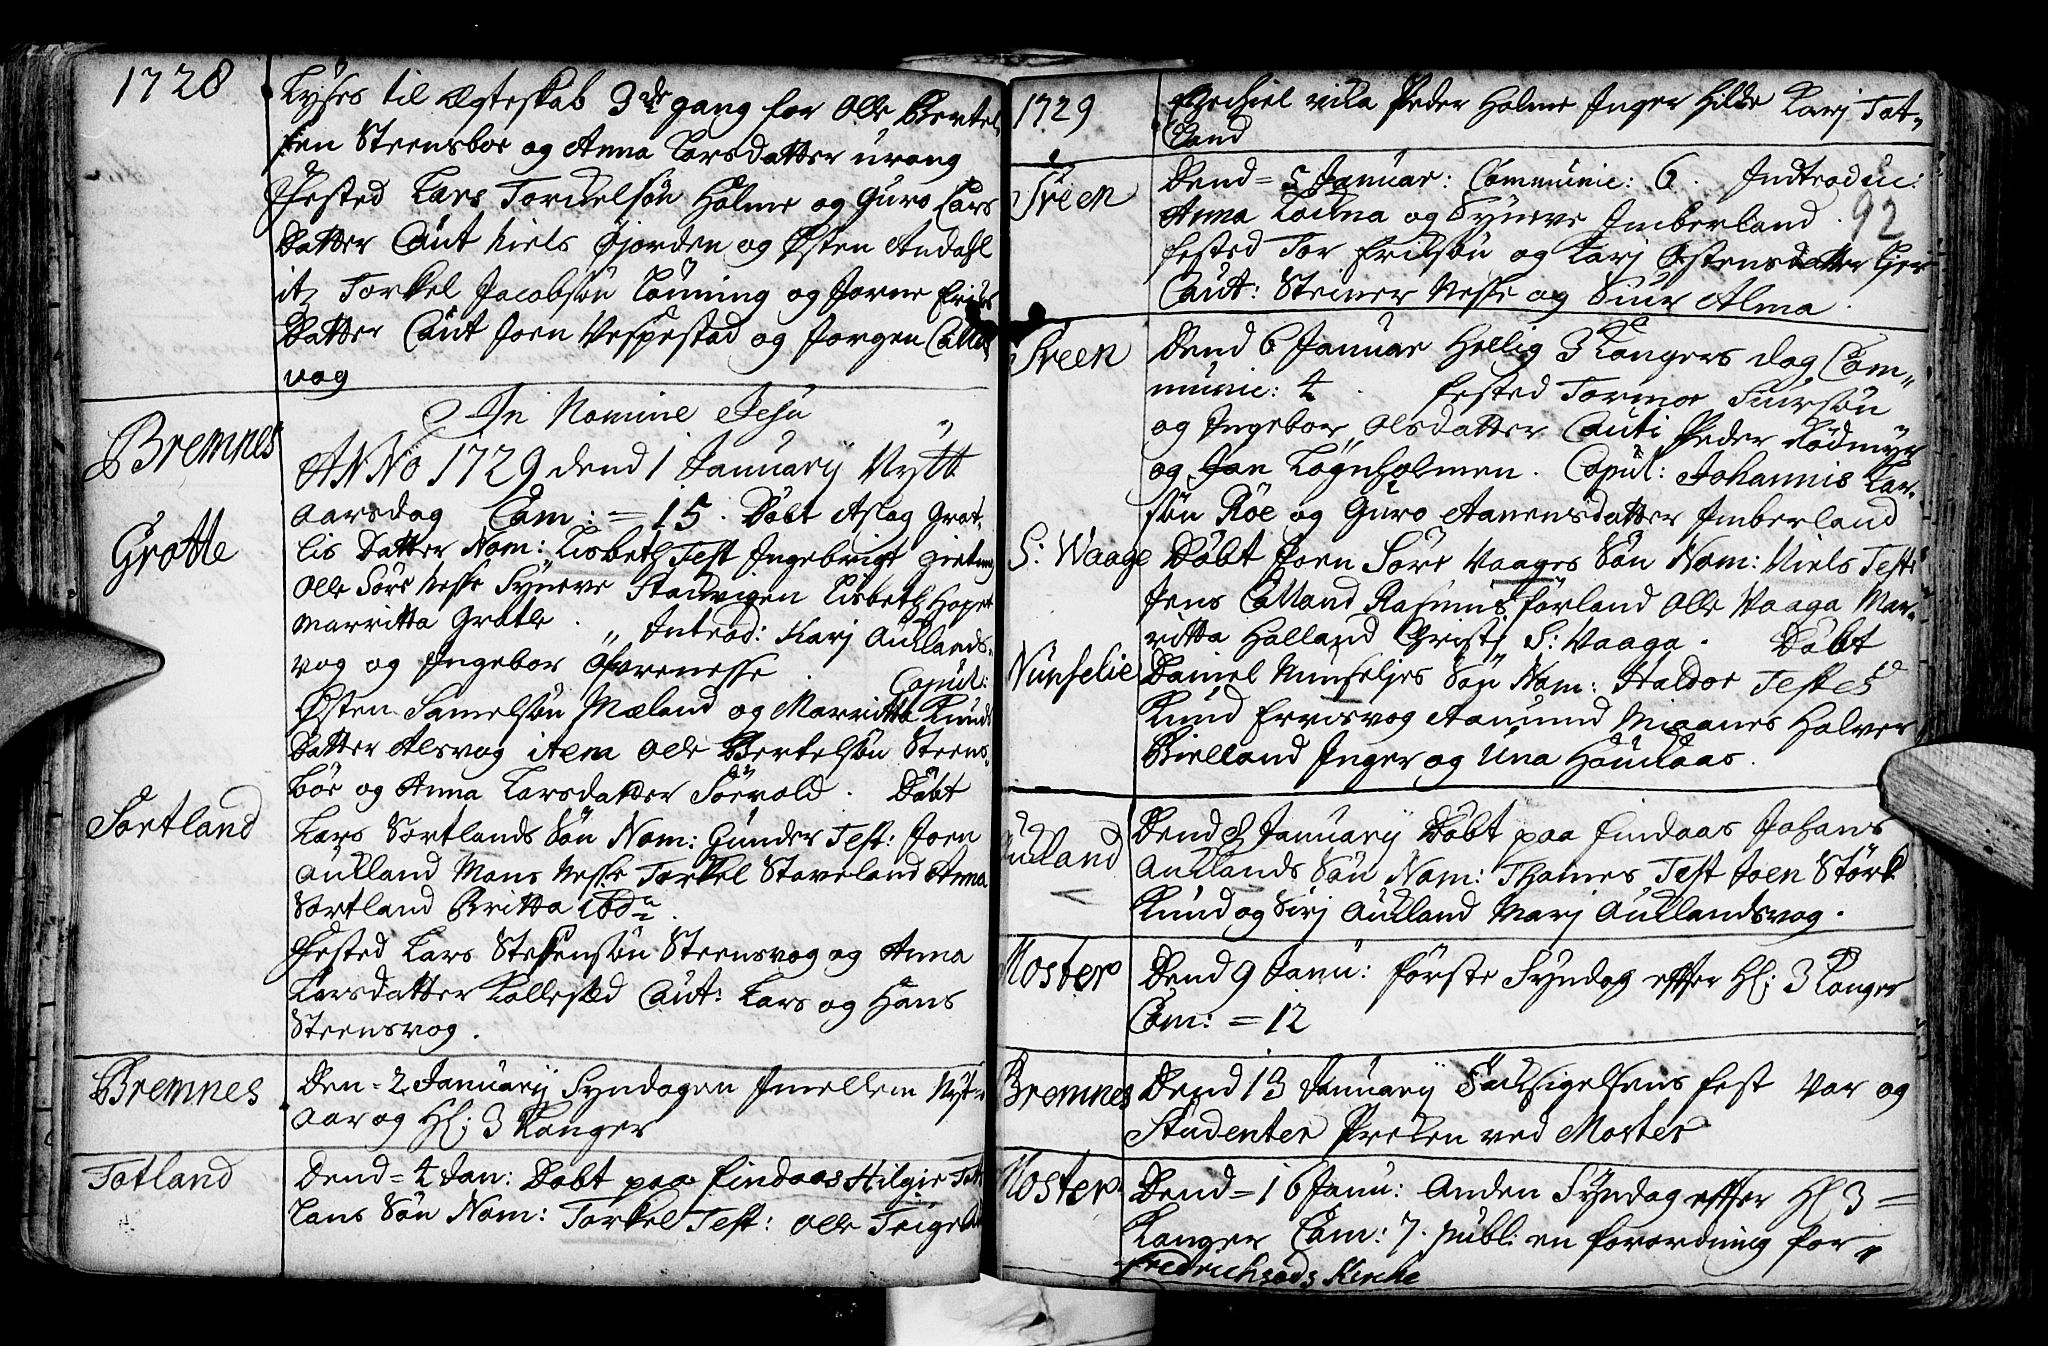 1728
Lyses til Ægteskab 3de gang for Olle Bertel
sen Steensboe og Anna Larsdatter urang
Fested Lars Torkelsøn Holme og Guro Lars
Datter Caut Niels Gjorden og Østen Andahl
it Torkel Jacobsøn Lønning og Jorne Erichs
Datter Caut Joen Vespestad og Jørgen Calla
vog
Bremnes
In Nomine Jesu
ANNO 1729 dend 1 Januarij Nytt
aarsdag Com: = 15. Døbt Aslag Grot-
Grotle
lis Datter Nom: Lisbeth Test Ingebrigt
Olle Søre Nesse Syneve Stadvigen Lisbeth Hope
Marritta Grotle. Introd: Karj Auklands-
vog og Ingebor Øfrenesse. Copul:
Østen Samelsøn Mæland og Marritta Knuds
Datter Alsvog item Olle Bertelsøn Steens-
bøe og Anna Larsdatter Søevold. Døbt
Sortland
Lars Sortlands Søn Nom: Gunder Test: Joen
Aukland Mons Nesse Torkel Staveland Anna
Sortland Britta ibd
Fested Lars Steffensøn Steensvog og Anna
Larsdatter Kallested Caut: Lars og Hans
Steensvog.
Bremnes
Den = 2 Januarij Syndagen Imellem Nyt-
aar og Hl: 3 Konger
Totland
Dend = 4 Jan: Døbt paa Findaas Hilgie Tot
lans Søn Nom: Torkel Test: Olle Teigeland
1729
Ezechiel vika Peder Holme Inger Hilde Karj Tot-
land
92
Sveen
Dend = 5 Januar: Communic: 6. Indtroduc:
Anna Lønna og Syneve Imberland.
Fested Tor Erilsøn og Karj Østensdatter
Caut: Steiner Nesse og Siur Alma.
Sveen
Dend 6 Januar Hellig 3 Kongers dag Com-
munic: 4. Fested Tormoe Siursøn
og Ingebor Olsdatter Cauti Peder Rødmyr
og Jan Løgnholmen. Copul: Johannis Lar-
søn Røe og Guro Aanensdatter Imberland
S: Waage
Døbt Joen Søre Vaages Søn Nom: Niels Test:
Jens Calland Rasmus Førland Olle Vaaga Mar-
ritta Halland Christj S: Vaaga. Døbt
Nunselie
Daniel Nunseljes Søn Nom: Haldor Testes
Knud Ervesvog Aamund Miganes Halver
Bielland Inger og Una Houkaas.
Aukland
Dend 8 Januarij Døbt paa Findaas Johans
Auklands Søn Nom: Thomes Test Joen Størk
Knud og Sirj Aukland Marj Auklandsvog.
Moster
Dend 9 Janu: Første Syndag effter Hl: 3 Konger
Com: = 12
Bremnes
Dend 13 Januarij Taksigelsens Fest Var og
Studenter Preken ved Moster
Moster
Dend = 16 Janu: Anden Syndag effter Hl 3 =
Konger Com: 7. publ: en forordning for
Fredrichsods Kirche